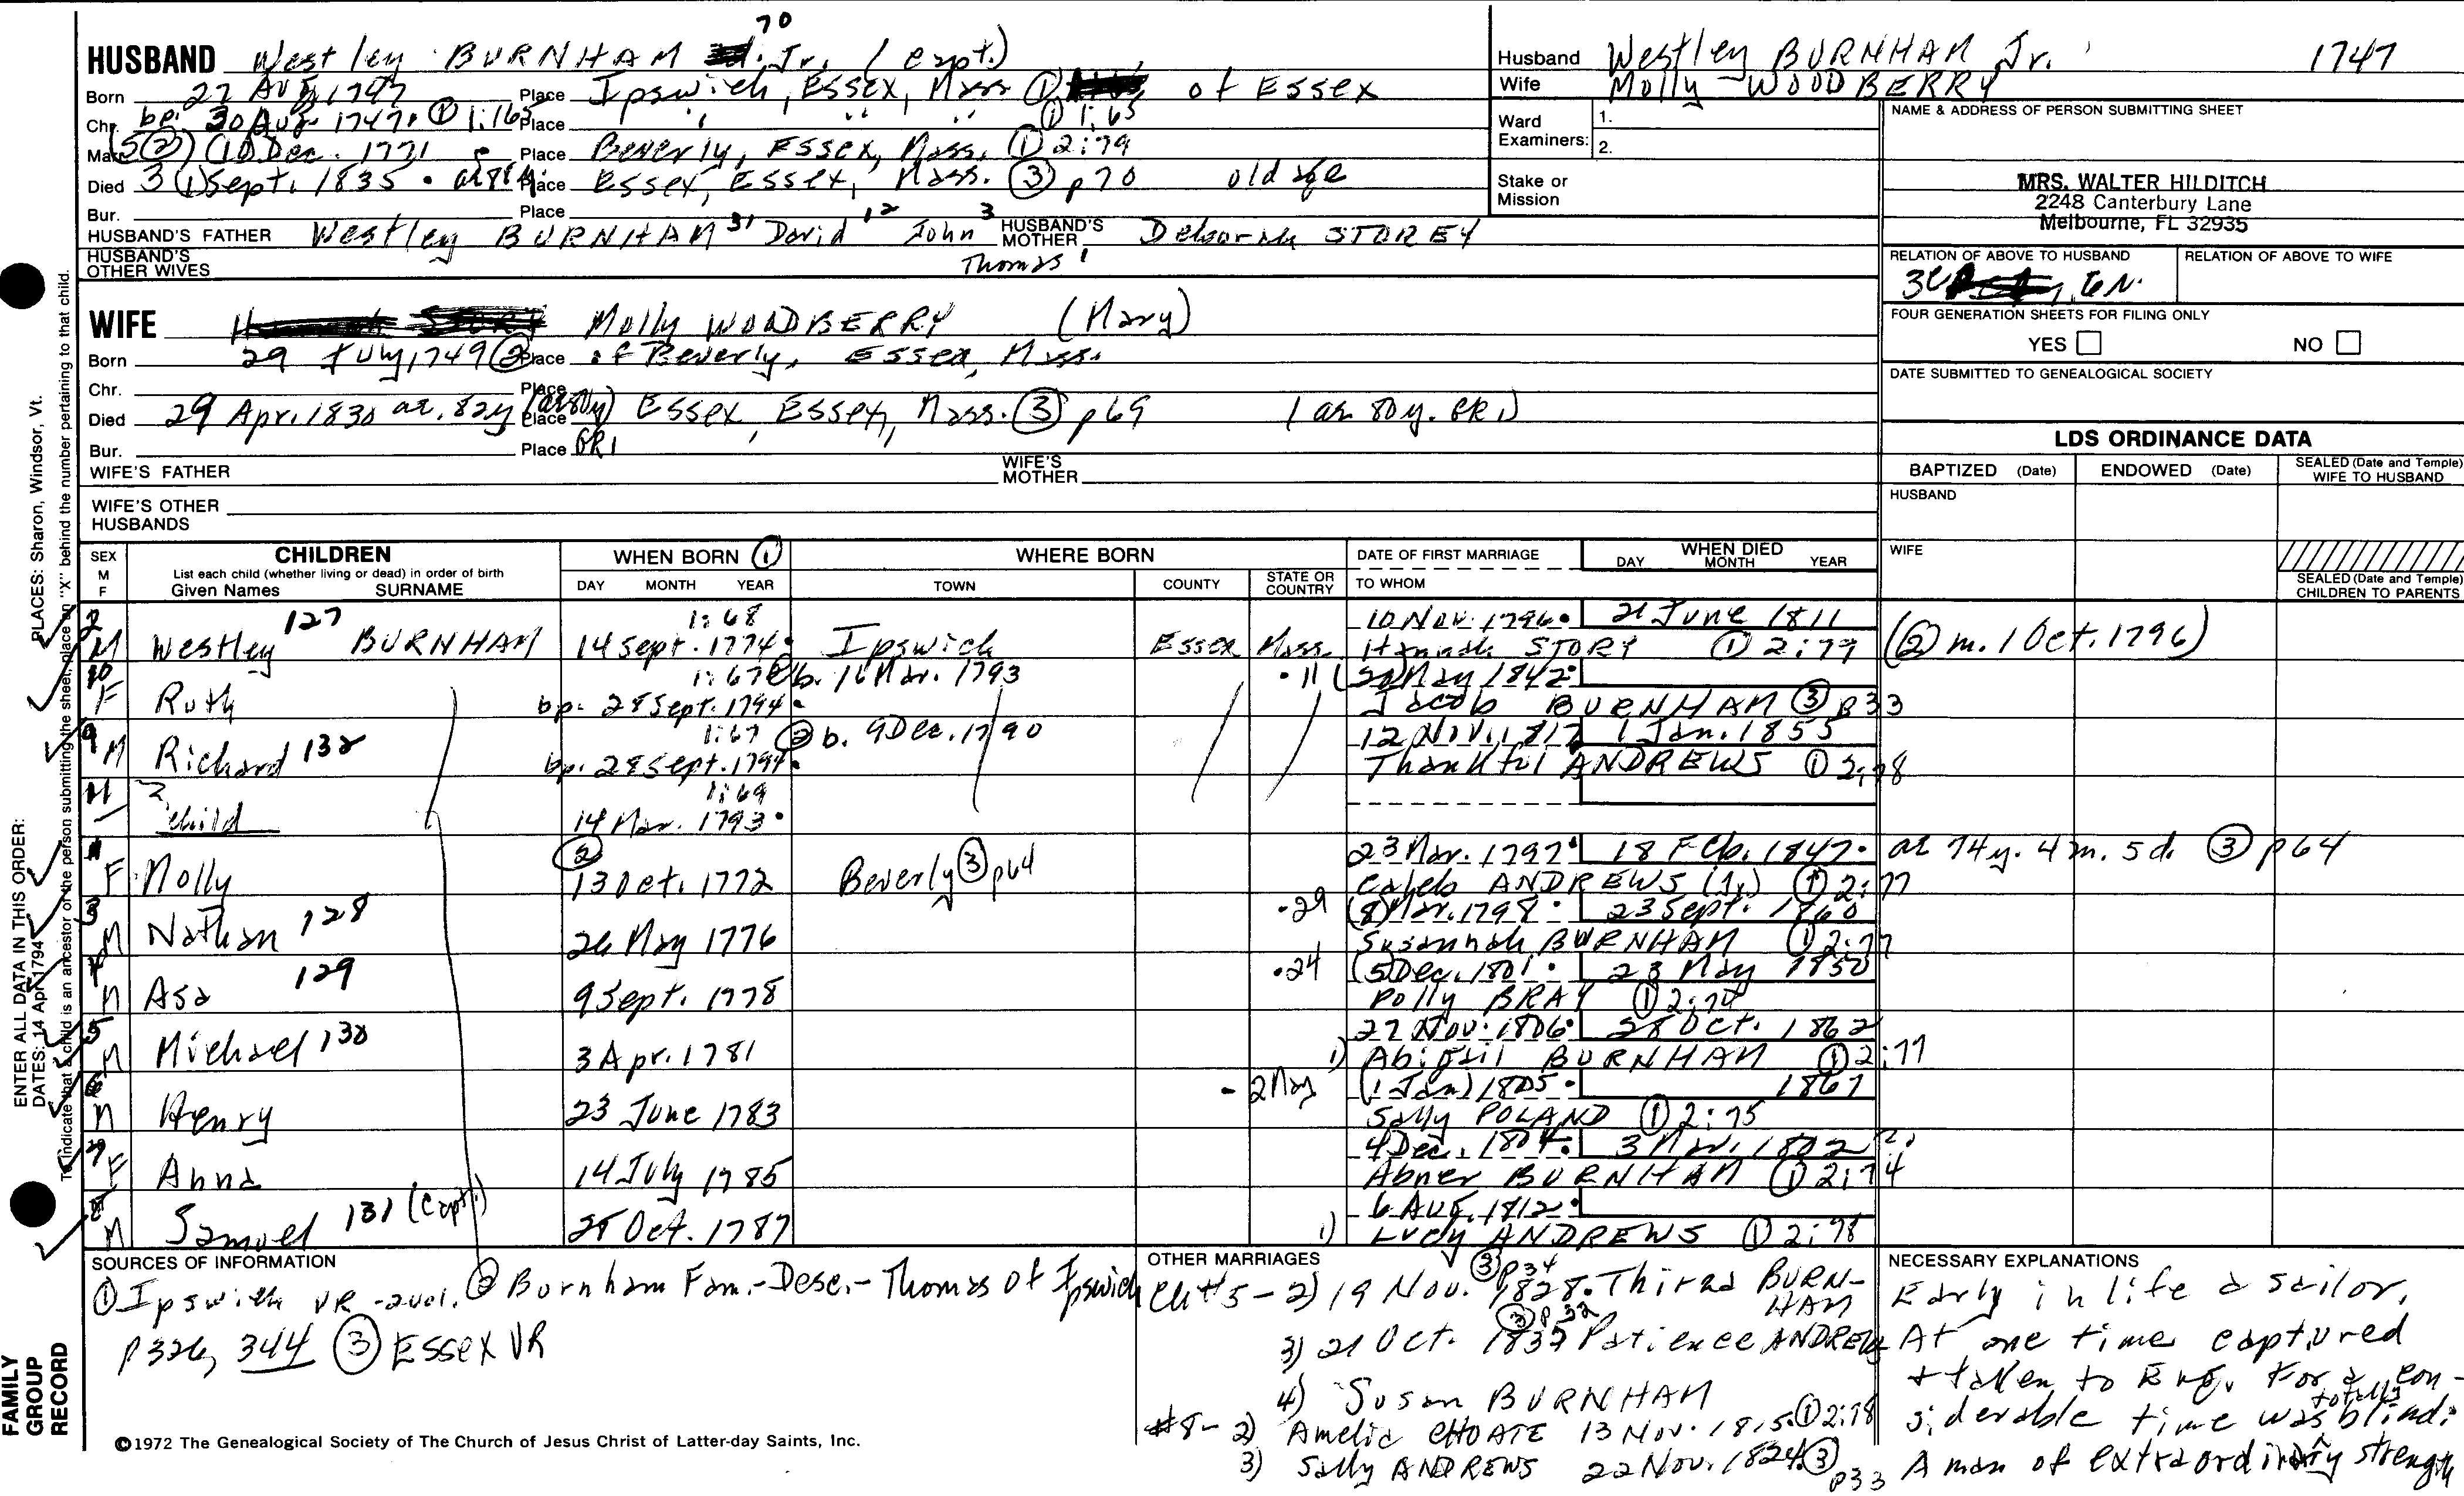 70
HUSBAND Westley BURNHAM Jr. (Capt.)
Born 27 Aug. 1747 Place Ipswich, Essex, Mass ① of Essex
Chr. bp. 30 Aug. 1747. ① 1:165 Place " " " ① 1:65
Marr. 5 (②) (10 Dec. 1771 Place Beverly, Essex, Mass. ① 2:79
Died 3 (1) Sept. 1835 . Place Essex, Essex, Mass. ③ p70 old age
Bur. Place
HUSBAND'S FATHER Westley BURNHAM 31 David 12 John 3 HUSBAND'S MOTHER Deborah STOREY
HUSBAND'S OTHER WIVES Thomas 1
WIFE Molly WOODBERRY (Mary)
Born 29 July 1749 ② Place of Beverly, Essex, Mass.
Chr. Place
Died 29 Apr. 1830 ae. 82y (ae 80y) Place Essex, Essex, Mass. ③ p69 (ae 80y. GR1)
Bur. Place GR1
WIFE'S FATHER WIFE'S MOTHER
WIFE'S OTHER HUSBANDS
Husband Westley BURNHAM Jr. 1747
Wife Molly WOODBERRY
Ward Examiners: 1.
2.
Stake or Mission
NAME & ADDRESS OF PERSON SUBMITTING SHEET
MRS. WALTER HILDITCH
2248 Canterbury Lane
Melbourne, FL 32935
RELATION OF ABOVE TO HUSBAND RELATION OF ABOVE TO WIFE
3C 6N.
FOUR GENERATION SHEETS FOR FILING ONLY
YES NO
DATE SUBMITTED TO GENEALOGICAL SOCIETY
LDS ORDINANCE DATA
BAPTIZED (Date) ENDOWED (Date) SEALED (Date and Temple) WIFE TO HUSBAND
HUSBAND
WIFE
SEALED (Date and Temple) CHILDREN TO PARENTS
SEX M F CHILDREN WHEN BORN ① WHERE BORN DATE OF FIRST MARRIAGE WHEN DIED
List each child (whether living or dead) in order of birth
Given Names SURNAME DAY MONTH YEAR TOWN COUNTY STATE OR COUNTRY TO WHOM DAY MONTH YEAR
2 127 1:68 10 Nov. 1796. 21 June 1811
M Westley BURNHAM 14 Sept. 1774. Ipswich Essex Mass. Hannah STORY ① 2:79 (② m. 1 Oct. 1796)
10 1:67 ② b. 16 Mar. 1793 . 11 (20 May 1842.
F Ruth bp. 28 Sept. 1794. Jacob BURNHAM ③ p33
9 1:67 ② b. 9 Dec. 1790 12 Nov. 1817 1 Jan. 1855
M Richard 132 bp. 28 Sept. 1794. Thankful ANDREWS ① 2:78
11 ? 1:69
child 14 Mar. 1793.
1 ② 23 Mar. 1797. 18 Feb. 1847. ae 74y. 4m. 5d. ③ p64
F Molly 13 Oct. 1772 Beverly ③ p64 Caleb ANDREWS (Jr.) ① 2:77
3 128 .29 (8) Mar. 1798. 23 Sept. 1860
M Nathan 26 May 1776 Susannah BURNHAM ① 2:77
4 129 .24 (5) Dec. 1801. 23 May 1850
M Asa 9 Sept. 1778 Polly BRAY ① 2:74
5 27 Nov. 1806. 28 Oct. 1862
M Michael 130 3 Apr. 1781 1) Abigail BURNHAM ① 2:77
6 - 2 May (1 Jan) 1805. 1867
M Henry 23 June 1783 Sally POLAND ① 2:75
7 4 Dec. 1804. 3 Mar. 1802 ?
F Anna 14 July 1785 Abner BURNHAM ① 2:74
8 6 Aug. 1812.
M Samuel 131 (Capt.) 28 Oct. 1787 1) Lucy ANDREWS ① 2:78
SOURCES OF INFORMATION
① Ipswich VR - 2 vol. ② Burnham Fam. - Desc. - Thomas of Ipswich
p326, 344 ③ Essex VR
OTHER MARRIAGES
③ p34
Ch #5 - 2) 19 Nov. 1828. Thirza BURNHAM
③ p32
3) 21 Oct. 1837 Patience ANDREWS
4) Susan BURNHAM
#8 - 2) Amelia CHOATE 13 Nov. 1815. ① 2:78
3) Sally ANDREWS 22 Nov. 1824. ③ p33
NECESSARY EXPLANATIONS
Early in life a sailor,
At one time captured
+ taken to Eng. For a con-
siderable time was totally blind.
A man of extraordinary strength
ENTER ALL DATA IN THIS ORDER:
DATES: 14 Apr 1794
PLACES: Sharon, Windsor, Vt.
To indicate that a child is an ancestor of the person submitting the sheet, place an "X" behind the number pertaining to that child.
FAMILY
GROUP
RECORD
©1972 The Genealogical Society of The Church of Jesus Christ of Latter-day Saints, Inc.